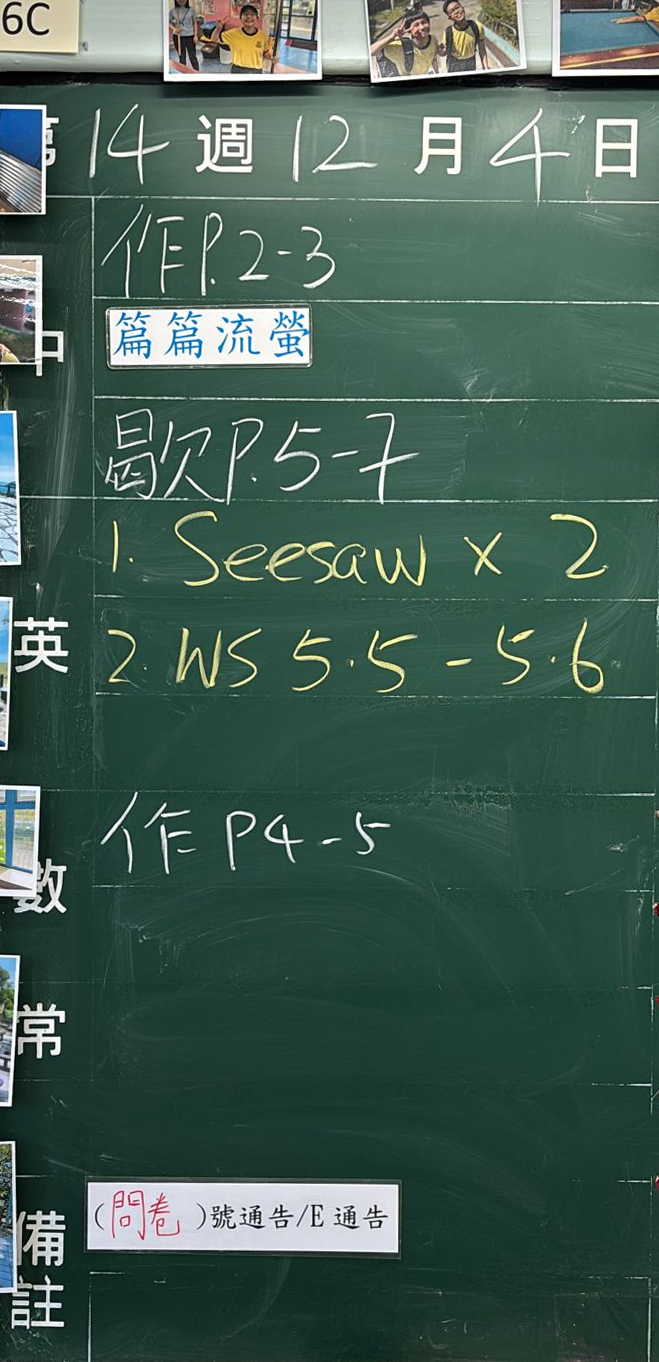 6C
第14週12月4日
作P.2-3
中
篇篇流螢
歇P.5-7
1. Seesaw x 2
英
2. WS 5.5 - 5.6
作 P4-5
數
常
(問卷)號通告/E通告
備註